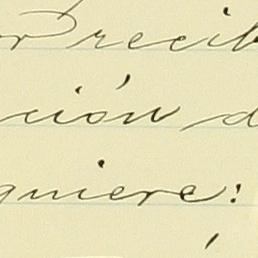 or recib
ción d
quiere: